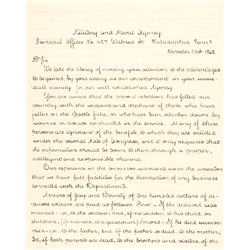 Military and Naval Agency
Principal Office No. 427 Walnut St. Philadelphia Penn
Dr Sir
We take the liberty of inviting your attention to the advantages
to be gained by your acting as our correspondent in your imme-
diate vicinity for our well established Agency
You are aware that the present rebellion has filled our
country with the widows and orphans of those who have
fallen on the battle field, or who have been otherwise disabled by
wounds or sickness contracted in the service. Many of these
persons are ignorant of the benefits to which they are entitled
under the several acts of Congress, and it only requires that
the information should be given to them through a proper,
intelligent and responsible channel.
Our experience in the business warrants us in the assertion that
we have full facilities for the transaction of any business
connected with the Departments
Arrears of pay and Bounty of one hundred dollars of de-
ceased soldiers are paid as follows. First If the deceased was
married to the widow; if no widow, to his child or
children,
if the deceased was unmar-
ried to the father, but if the father is dead, to the mother,
if both parents are dead, to the brothers and sisters of the